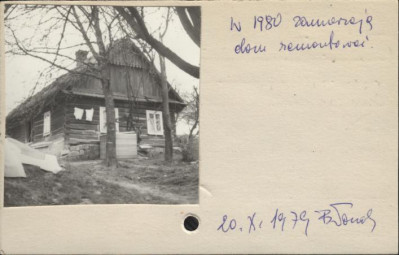 W 1980 zamierzają
dom remontować.
20. X. 1979